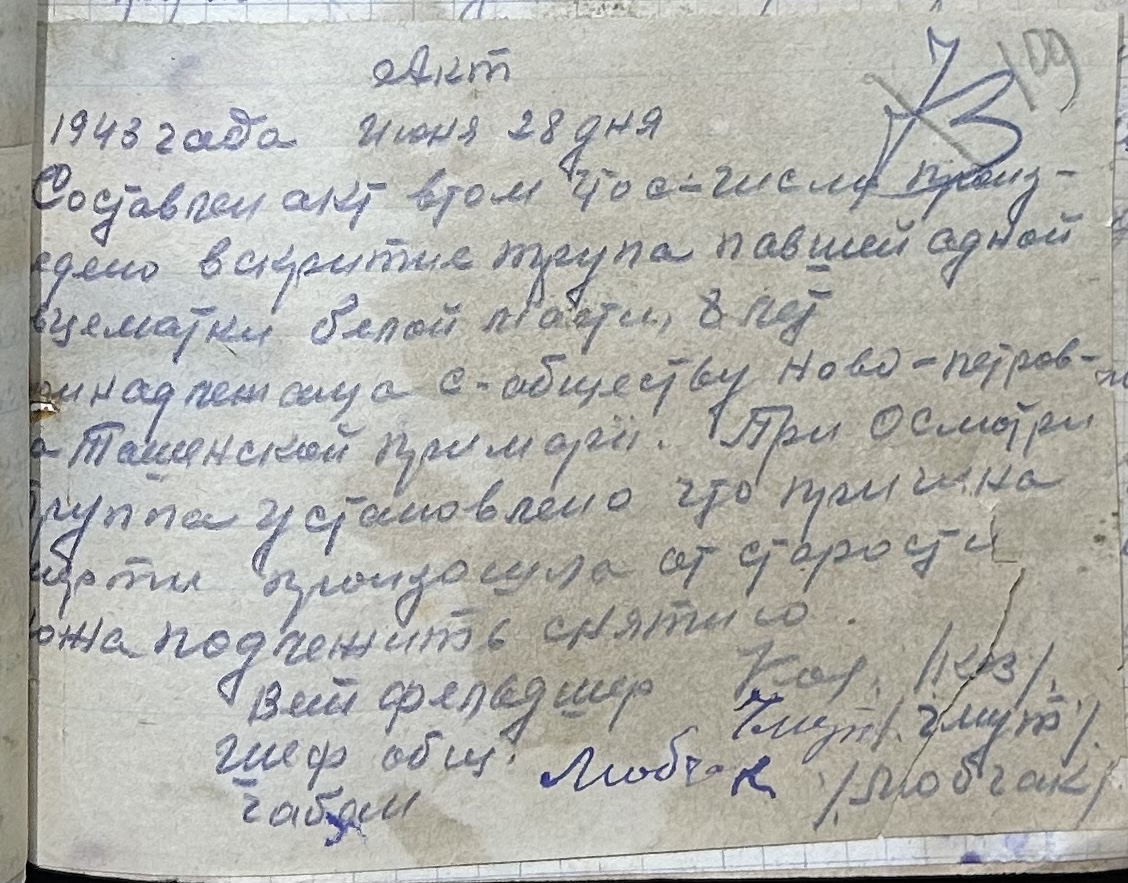 Акт
109
73
1943 гада Июня 28 дня
Составлен акт втом что с-числа произ-
едено вскрытие трупа павшей адной
вцематки белой масти, 8 лет
инадлежаща с-обществу Ново-петров-
а Ташенской примарii. При Осмотри
Труппа установлено что причина
ерти произошла от старости
ожа подлежить снятию.
Вет фельдшер Коз. /Коз/.
шеф общ. Чмут /Чмут/.
чабан Любчак /Любчак/